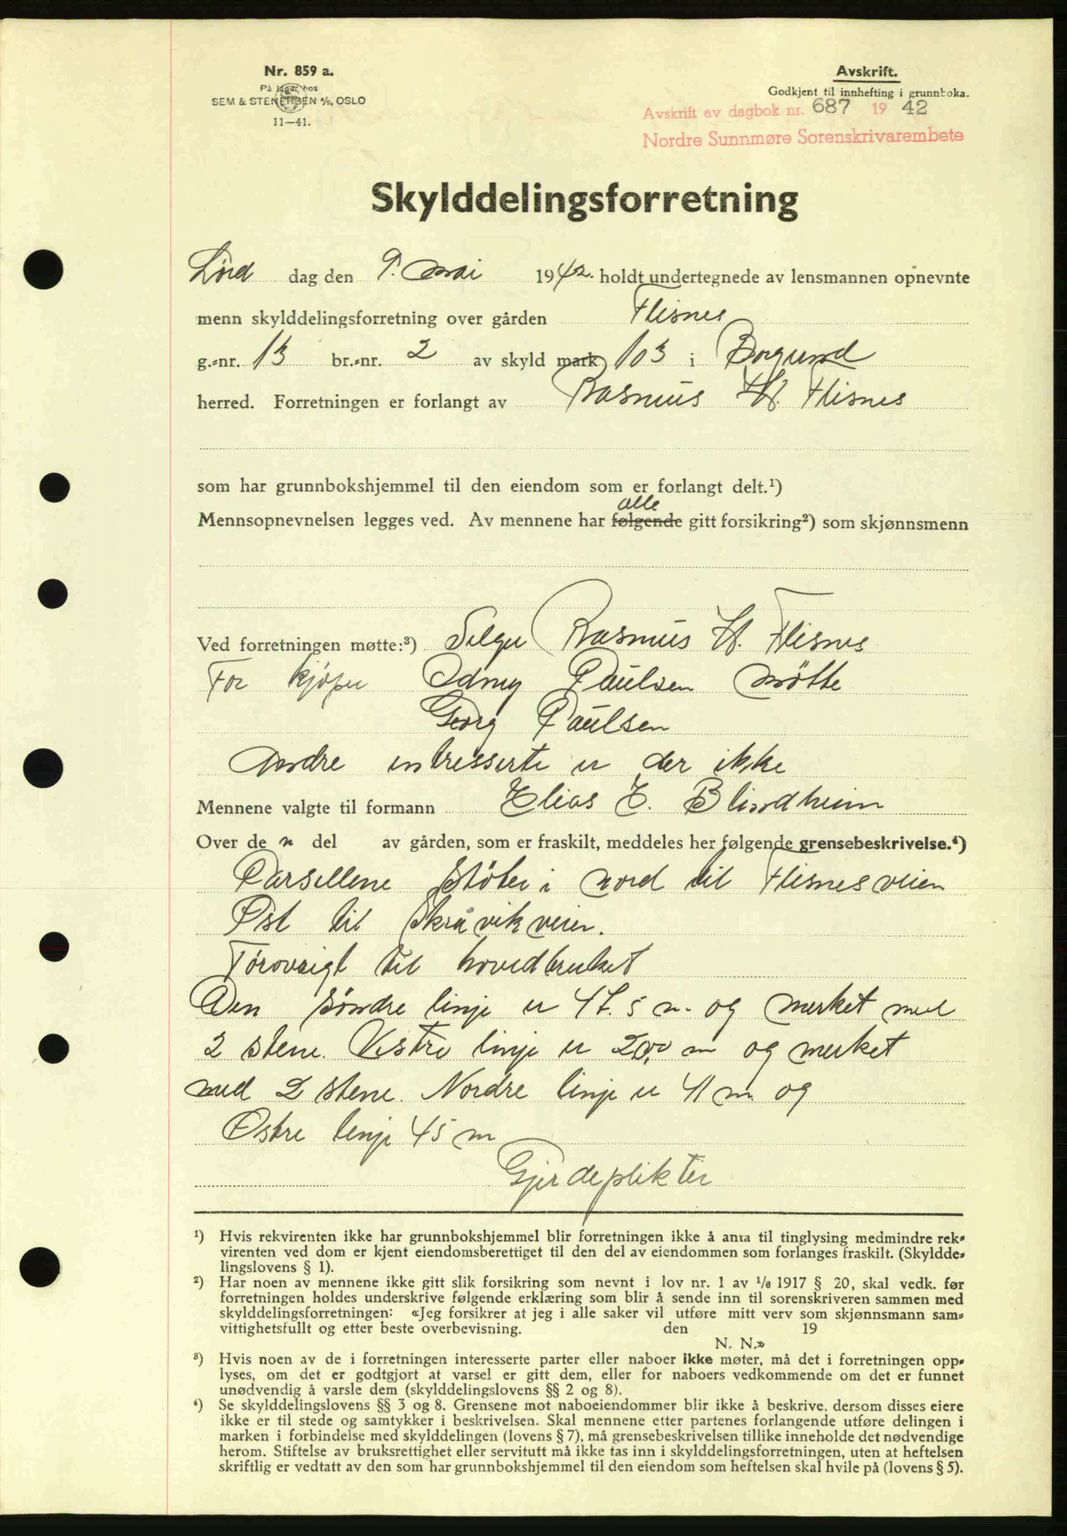 Nr. 859 a.
På lager hos
SEM & STENERSEN A/S, OSLO
11—41.
Avskrift.
Godkjent til innhefting i grunnboka.
Avskrift av dagbok nr. 687 1942
Nordre Sunnmøre Sorenskrivarembete
Skylddelingsforretning
Lørd dag den 9. mai 1942. holdt undertegnede av lensmannen opnevnte
menn skylddelingsforretning over gården Flisnes
g.-nr. 13 br.-nr. 2 av skyld mark 103 i Borgund
herred. Forretningen er forlangt av Rasmus H. Flisnes
som har grunnbokshjemmel til den eiendom som er forlangt delt.¹)
alle
Mennsopnevnelsen legges ved. Av mennene har følgende gitt forsikring²) som skjønnsmenn
Ved forretningen møtte:³) Selger Rasmus H. Flisnes
For kjøper Odny Paulsen møtte
Georg Paulsen
Andre intresserte er der ikke
Mennene valgte til formann Elias E. Blindheim
Over de n del av gården, som er fraskilt, meddeles her følgende grensebeskrivelse.⁴)
Parsellene støter i nord til Flisnesveien
Øst til Skråvikveien.
Forøvrigt til hovedbruket
Den søndre linje er 47.5 m. og merket med
2 stene. Vestre linje er 20,0 m og merket
med 2 stene. Nordre linje er 41 m og
Østre linje 45 m
Gjerdeplikter
¹) Hvis rekvirenten ikke har grunnbokshjemmel blir forretningen ikke å anta til tinglysing medmindre rek-
virenten ved dom er kjent eiendomsberettiget til den del av eiendommen som forlanges fraskilt. (Skyldde-
lingslovens § 1).
²) Har noen av mennene ikke gitt slik forsikring som nevnt i lov nr. 1 av 1/6 1917 § 20, skal vedk. før
forretningen holdes underskrive følgende erklæring som blir å sende inn til sorenskriveren sammen med
skylddelingsforretningen: «Jeg forsikrer at jeg i alle saker vil utføre mitt verv som skjønnsmann sam-
vittighetsfullt og etter beste overbevisning. den 19
N. N.»
³) Hvis noen av de i forretningen interesserte parter eller naboer ikke møter, må det i forretningen opp-
lyses, om det er godtgjort at varsel er gitt dem, eller for naboers vedkommende om det er funnet
unødvendig å varsle dem (skylddelingslovens §§ 2 og 8).
⁴) Se skylddelingslovens §§ 3 og 8. Grensene mot naboeiendommer blir ikke å beskrive, dersom disses eiere
ikke er til stede og samtykker i beskrivelsen. Skal mennene etter partenes forlangende utføre delingen i
marken i forbindelse med skylddelingen (lovens § 7), må grensebeskrivelsen tillike inneholde det nødvendige
herom. Stiftelse av bruksrettighet eller servitutt må ikke tas inn i skylddelingsforretningen, uten at heftelsen
skriftlig er vedtatt av den som har grunnbokshjemmel til den eiendom som heftelsen skal hvile på (lovens § 5).